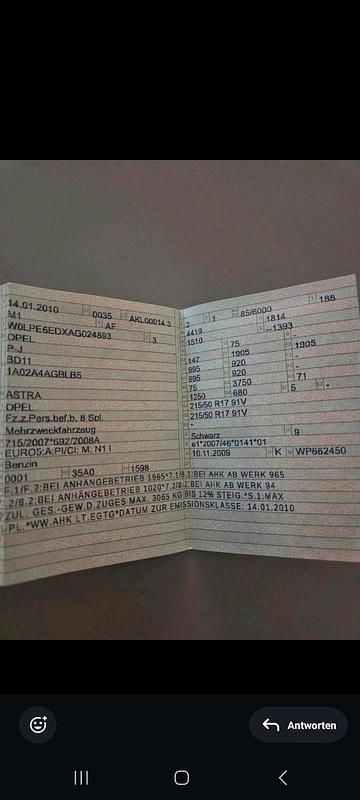 14.01.2010 0035 AKL00014 3
M1 AF
W0LPE6EDXAG024893 3
OPEL
P-J
BD11
1A02A4AGBLB5
ASTRA
OPEL
Fz.z.Pers.bef.b. 8 Spl.
Mehrzweckfahrzeug
715/2007*692/2008A
EURO5:A:PI/CI: M, N1 I
Benzin
0001 35A0 1598
2 1 85/6000 188
4419 1814
1510 --1393
- 75 -
147 1905 1905
995 920 -
995 920 -
75 3750 71
1250 680 5 -
215/50 R17 91V
215/50 R17 91V
-
Schwarz 9
e1*2007/46*0141*01
10.11.2009 K WP662450
F.1/F.2:BEI ANHÄNGEBETRIEB 1965*7.1/8.1:BEI AHK AB WERK 965
.2/8.2:BEI ANHÄNGEBETRIEB 1020*7.2/8.2:BEI AHK AB WERK 94
ZUL. GES.-GEW.D.ZUGES MAX. 3065 KG BIS 12% STEIG.*S.1:MAX
PL.*WW.AHK LT.EGTG*DATUM ZUR EMISSIONSKLASSE: 14.01.2010
Antworten